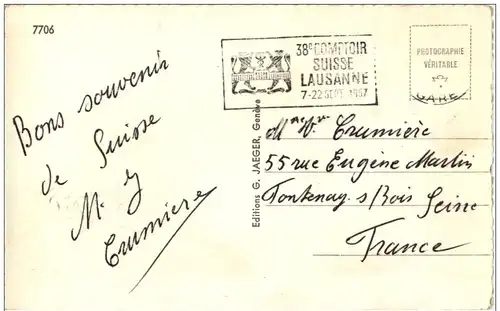 7706
38e COMPTOIR
SUISSE
LAUSANNE
7-22 SEPT. 1957
PHOTOGRAPHIE
VÉRITABLE
Bons souvenir
de Suisse
M.
Crumière
Editions G. JAEGER, Genève
Crumière
55 rue Eugène Martin
Fontenay s/Bois Seine
France